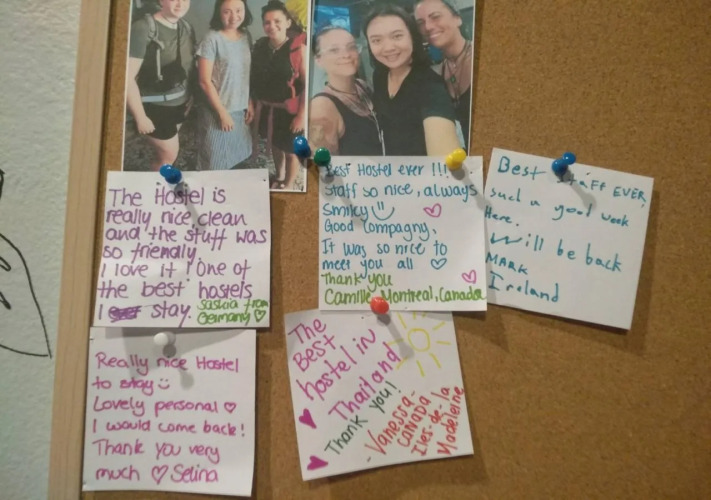 The Hostel is
really nice, clean
and the stuff was
so friendly.
I love it! One of
the best hostels
I stay. Saskia from
Germany ♡
Best Hostel ever !!!
Staff so nice, always
Smiley
Good Compagny,
It was so nice to
meet you all ♡
Thank you
Camille, Montreal, Canada
Best Staff EVER,
such a good week
Here.
Will be back
MARK
Ireland
Really nice Hostel
to stay
Lovely personal ♡
I would come back!
Thank you very
much ♡ Selina
The
Best
hostel in
Thailand
Thank you!
-Vanessa-
CANADA
Iles-de-la
Madeleine